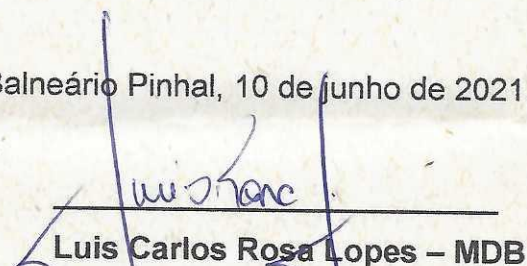 Balneário Pinhal, 10 de junho de 2021
Luis Carlos Rosa Lopes – MDB